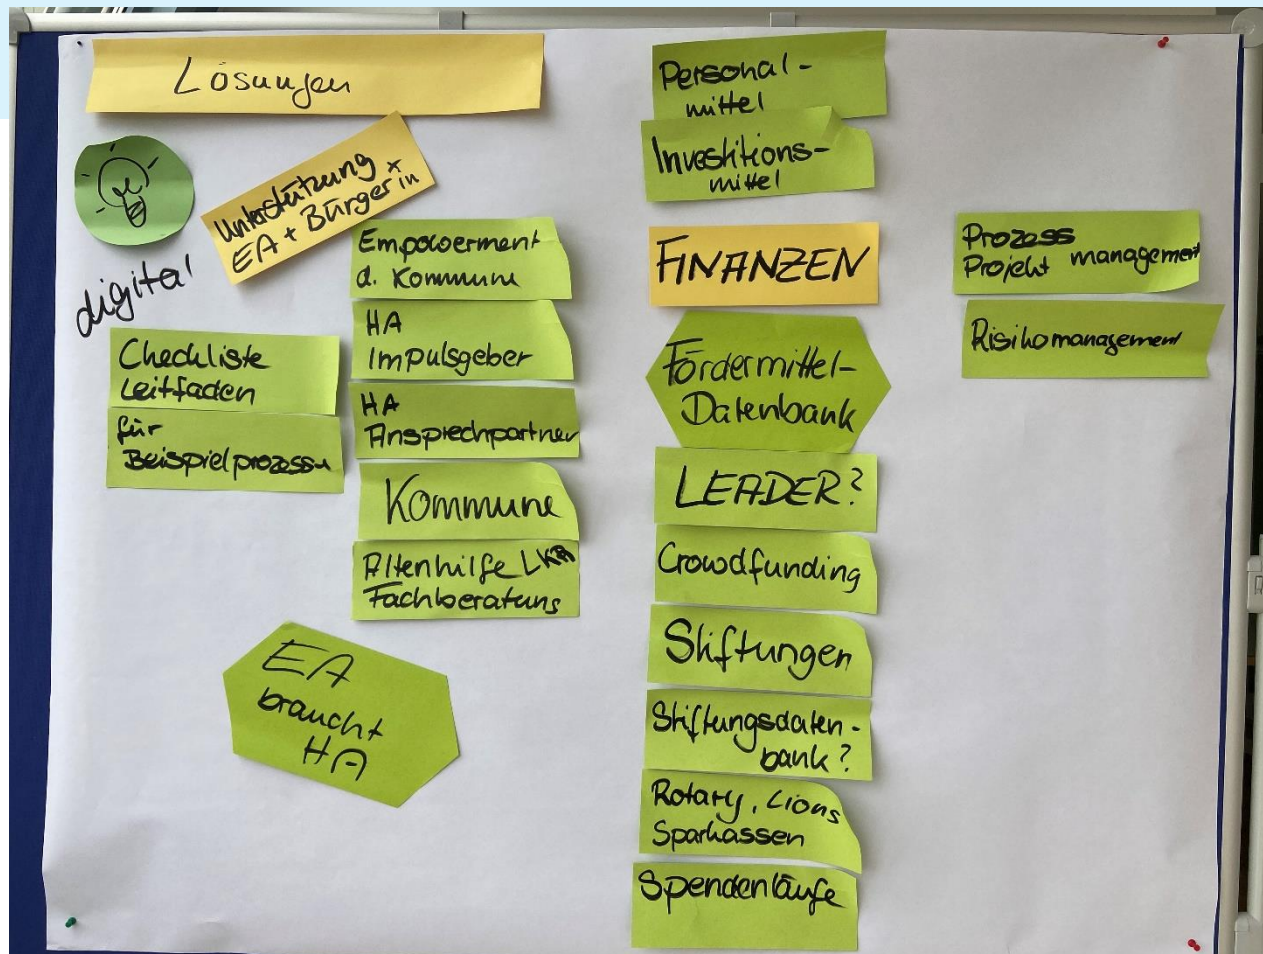 Lösungen
digital
Unterstützung
EA + Bürger*in
Checkliste
Leitfaden
für
Beispielprozesse
Empowerment
d. Kommune
HA
Impulsgeber
HA
Ansprechpartner
Kommune
Altenhilfe LKR
Fachberatung
EA
braucht
HA
Personal-
mittel
Investitions-
mittel
FINANZEN
Fördermittel-
Datenbank
LEADER?
Crowdfunding
Stiftungen
Stiftungsdaten-
bank?
Rotary, Lions
Sparkassen
Spendenläufe
Prozess
Projekt management
Risikomanagement